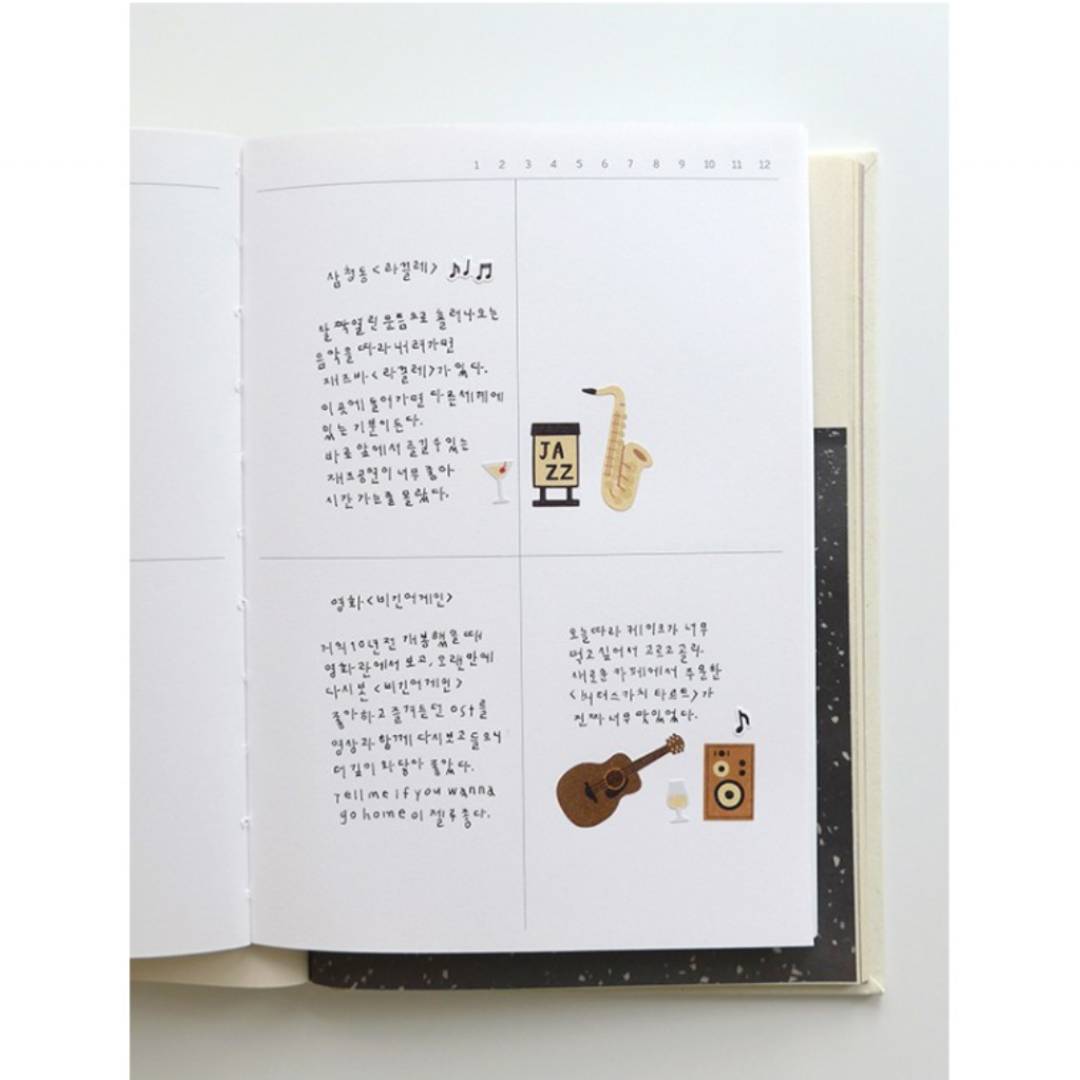 1 2 3 4 5 6 7 8 9 10 11 12
삼청동 <라끌레>
살짝 열린 문틈으로 흘러나오는
음악을 따라 내려가면
재즈바 <라끌레>가 있다.
이 곳에 들어가면 다른세계에
있는 기분이 든다.
바로 앞에서 즐길 수 있는
재즈공연이 너무 좋아
시간 가는줄 몰랐다.
JA
ZZ
영화 <비긴어게인>
거의 10년 전 개봉했을 때
영화관에서 보고, 오랜만에
다시 본 <비긴어게인>
좋아하고 즐겨듣던 ost를
영상과 함께 다시보고 들으니
더 깊이 와닿아 좋았다.
Tell me if you wanna
go home이 젤루 좋다.
오늘따라 케이크가 너무
먹고 싶어서 고르고 골라
새로운 카페에서 주문한
타르트>가
진짜 너무 맛있었다.